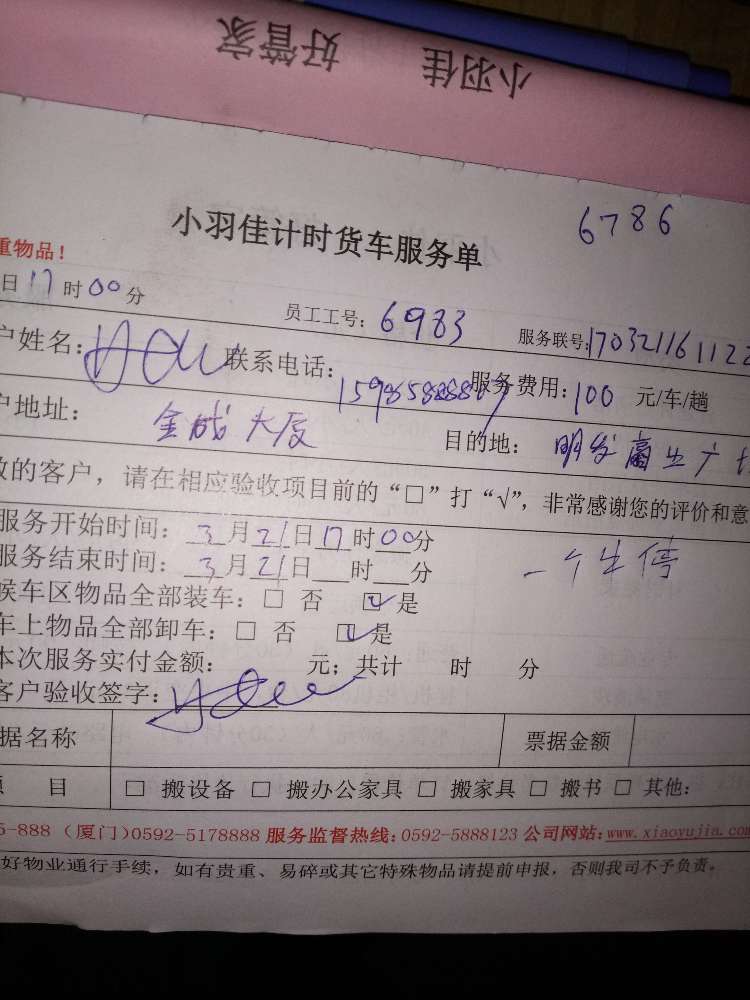 小羽佳 好管家
6786
小羽佳计时货车服务单
重物品!
日17时00分 员工工号:6983 服务联号:17032116112
户姓名: 联系电话: 服务费用:100 元/车/趟
户地址: 金成大厦 目的地: 明发商业广
的客户,请在相应验收项目前的“□”打“√”,非常感谢您的评价和意
服务开始时间:3月21日17时00分
服务结束时间:3月21日 时 分
候车区物品全部装车:□ 否 ☑是
车上物品全部卸车:□ 否 ☑是
本次服务实付金额: 元;共计 时 分
客户验收签字:
据名称 票据金额
项 目 □ 搬设备 □ 搬办公家具 □ 搬家具 □ 搬书 □ 其他:
5-888(厦门)0592-5178888 服务监督热线:0592-5888123 公司网站:www.xiaoyujia.com
好物业通行手续,如有贵重、易碎或其它特殊物品请提前申报,否则我司不予负责。